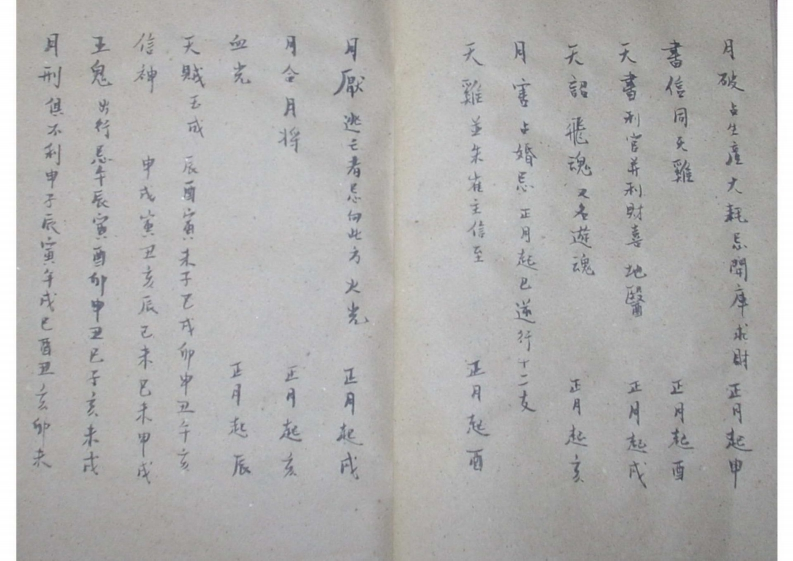 月破 占生產 大耗忌開庫求財 正月起申
書信 同天雞 正月起酉
天書 利官并利財喜 地醫 正月起戌
天詔 飛魂 又名遊魂 正月起亥
月害 占婚忌 正月起巳逆行十二支
天雞 並朱雀主信至 正月起酉
月厭 逃亡者忌向此方 火光 正月起戌
月合 月將 正月起亥
血光 正月起辰
天賊 玉成 辰酉寅未子巳戌卯申丑午亥
信神 申戌寅丑亥辰巳未巳未申戌
王鬼 出行忌 午辰寅酉卯申丑巳子亥未戌
月刑 俱不利 申子辰寅午戌巳酉丑亥卯未